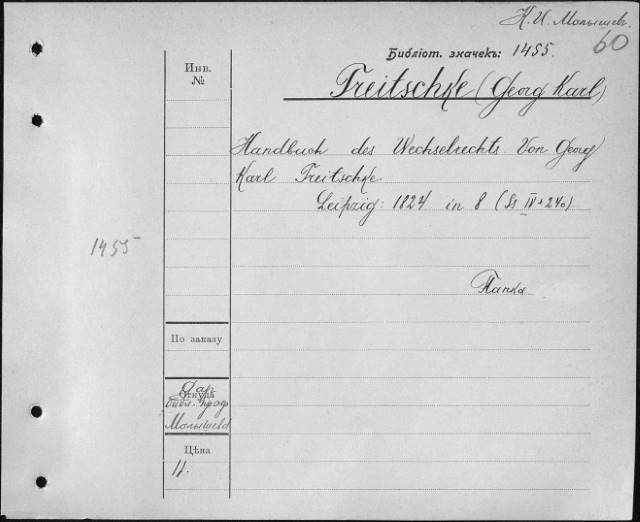 К. И. Малышев.
60
Библіот. значекъ: 1455.
Инв.
№
Treitschke (Georg Karl)
Handbuch des Wechselrechts. Von Georg
Karl Treitschke.
Leipzig: 1824 in 8 (Ss IV+240)
1455
Папка
По заказу
Откуда
Дар.
библ. проф.
Малышева
Цѣна
11.